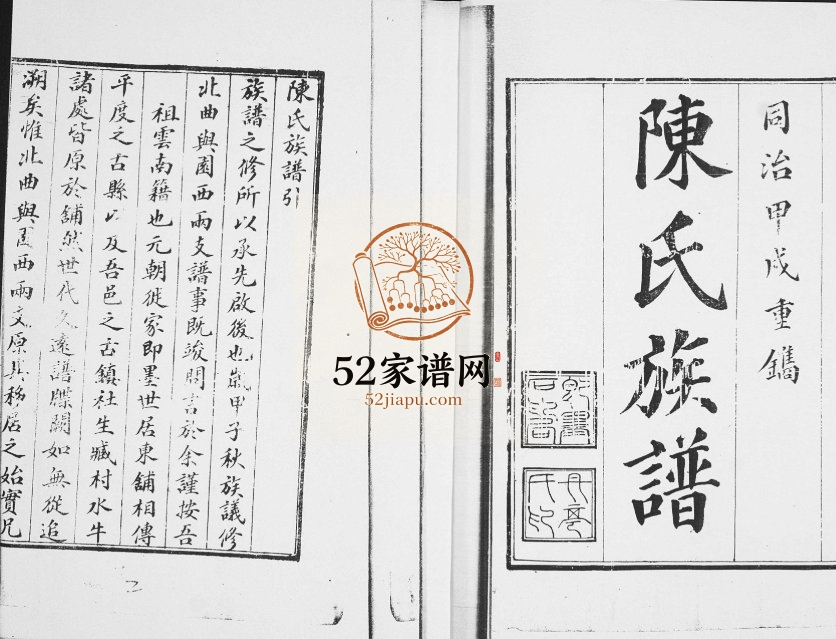 同治甲戌重鐫
陳氏族譜
陳氏族譜引
族譜之修所以承先啟後也歲甲子秋族議修
北曲與園西兩支譜事既竣問言於余謹按吾
祖雲南籍也元朝徙家即墨世居東鋪相傳
平度之古縣以及吾邑之古鎮社生藏村水牛
諸處皆原於舖然世代久遠譜牒闕如無從追
溯矣惟北曲與園西兩支原其移居之始實兄
52家谱网
52jiapu.com